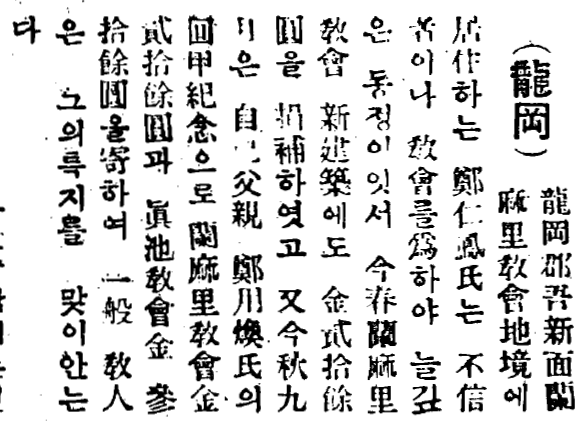 (龍岡)
龍岡郡吾新面蘭
麻里敎會地境에
居住하는 鄭仁鳳氏는 不信
者이나 敎會를爲하야 늘깁
은 동정이잇서 今春蘭麻里
敎會 新建築에도 金貳拾餘
圓을 捐補하엿고 又今秋九
月은 自己父親 鄭川煥氏의
回甲紀念으로 蘭麻里敎會金
貳拾餘圓과 眞池敎會金 參
拾餘圓을寄하여 一般 敎人
은 그의륵지를 맞이안는
다